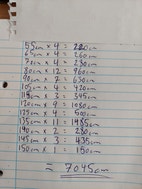 55cm x 4 = 220cm
65cm x 4 = 260cm
70cm x 4 = 280cm
80cm x 12 = 960cm
90cm x 7 = 630cm
105cm x 4 = 420cm
115cm x 3 = 345cm
120cm x 9 = 1080cm
125cm x 4 = 500cm
135cm x 11 = 1485cm
140cm x 2 = 280cm
145cm x 3 = 435cm
150cm x 1 = 150cm
= 7045cm